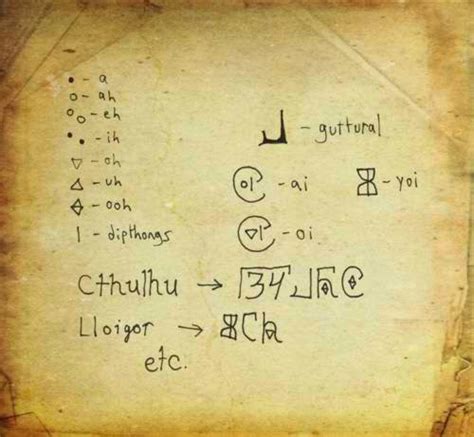 • - a
o - ah
oo - eh
•• - ih
▽ - oh
△ - uh
- ooh
| - dipthongs
- guttural
- ai
- yoi
- oi
Cthulhu →
Lloigor →
etc.